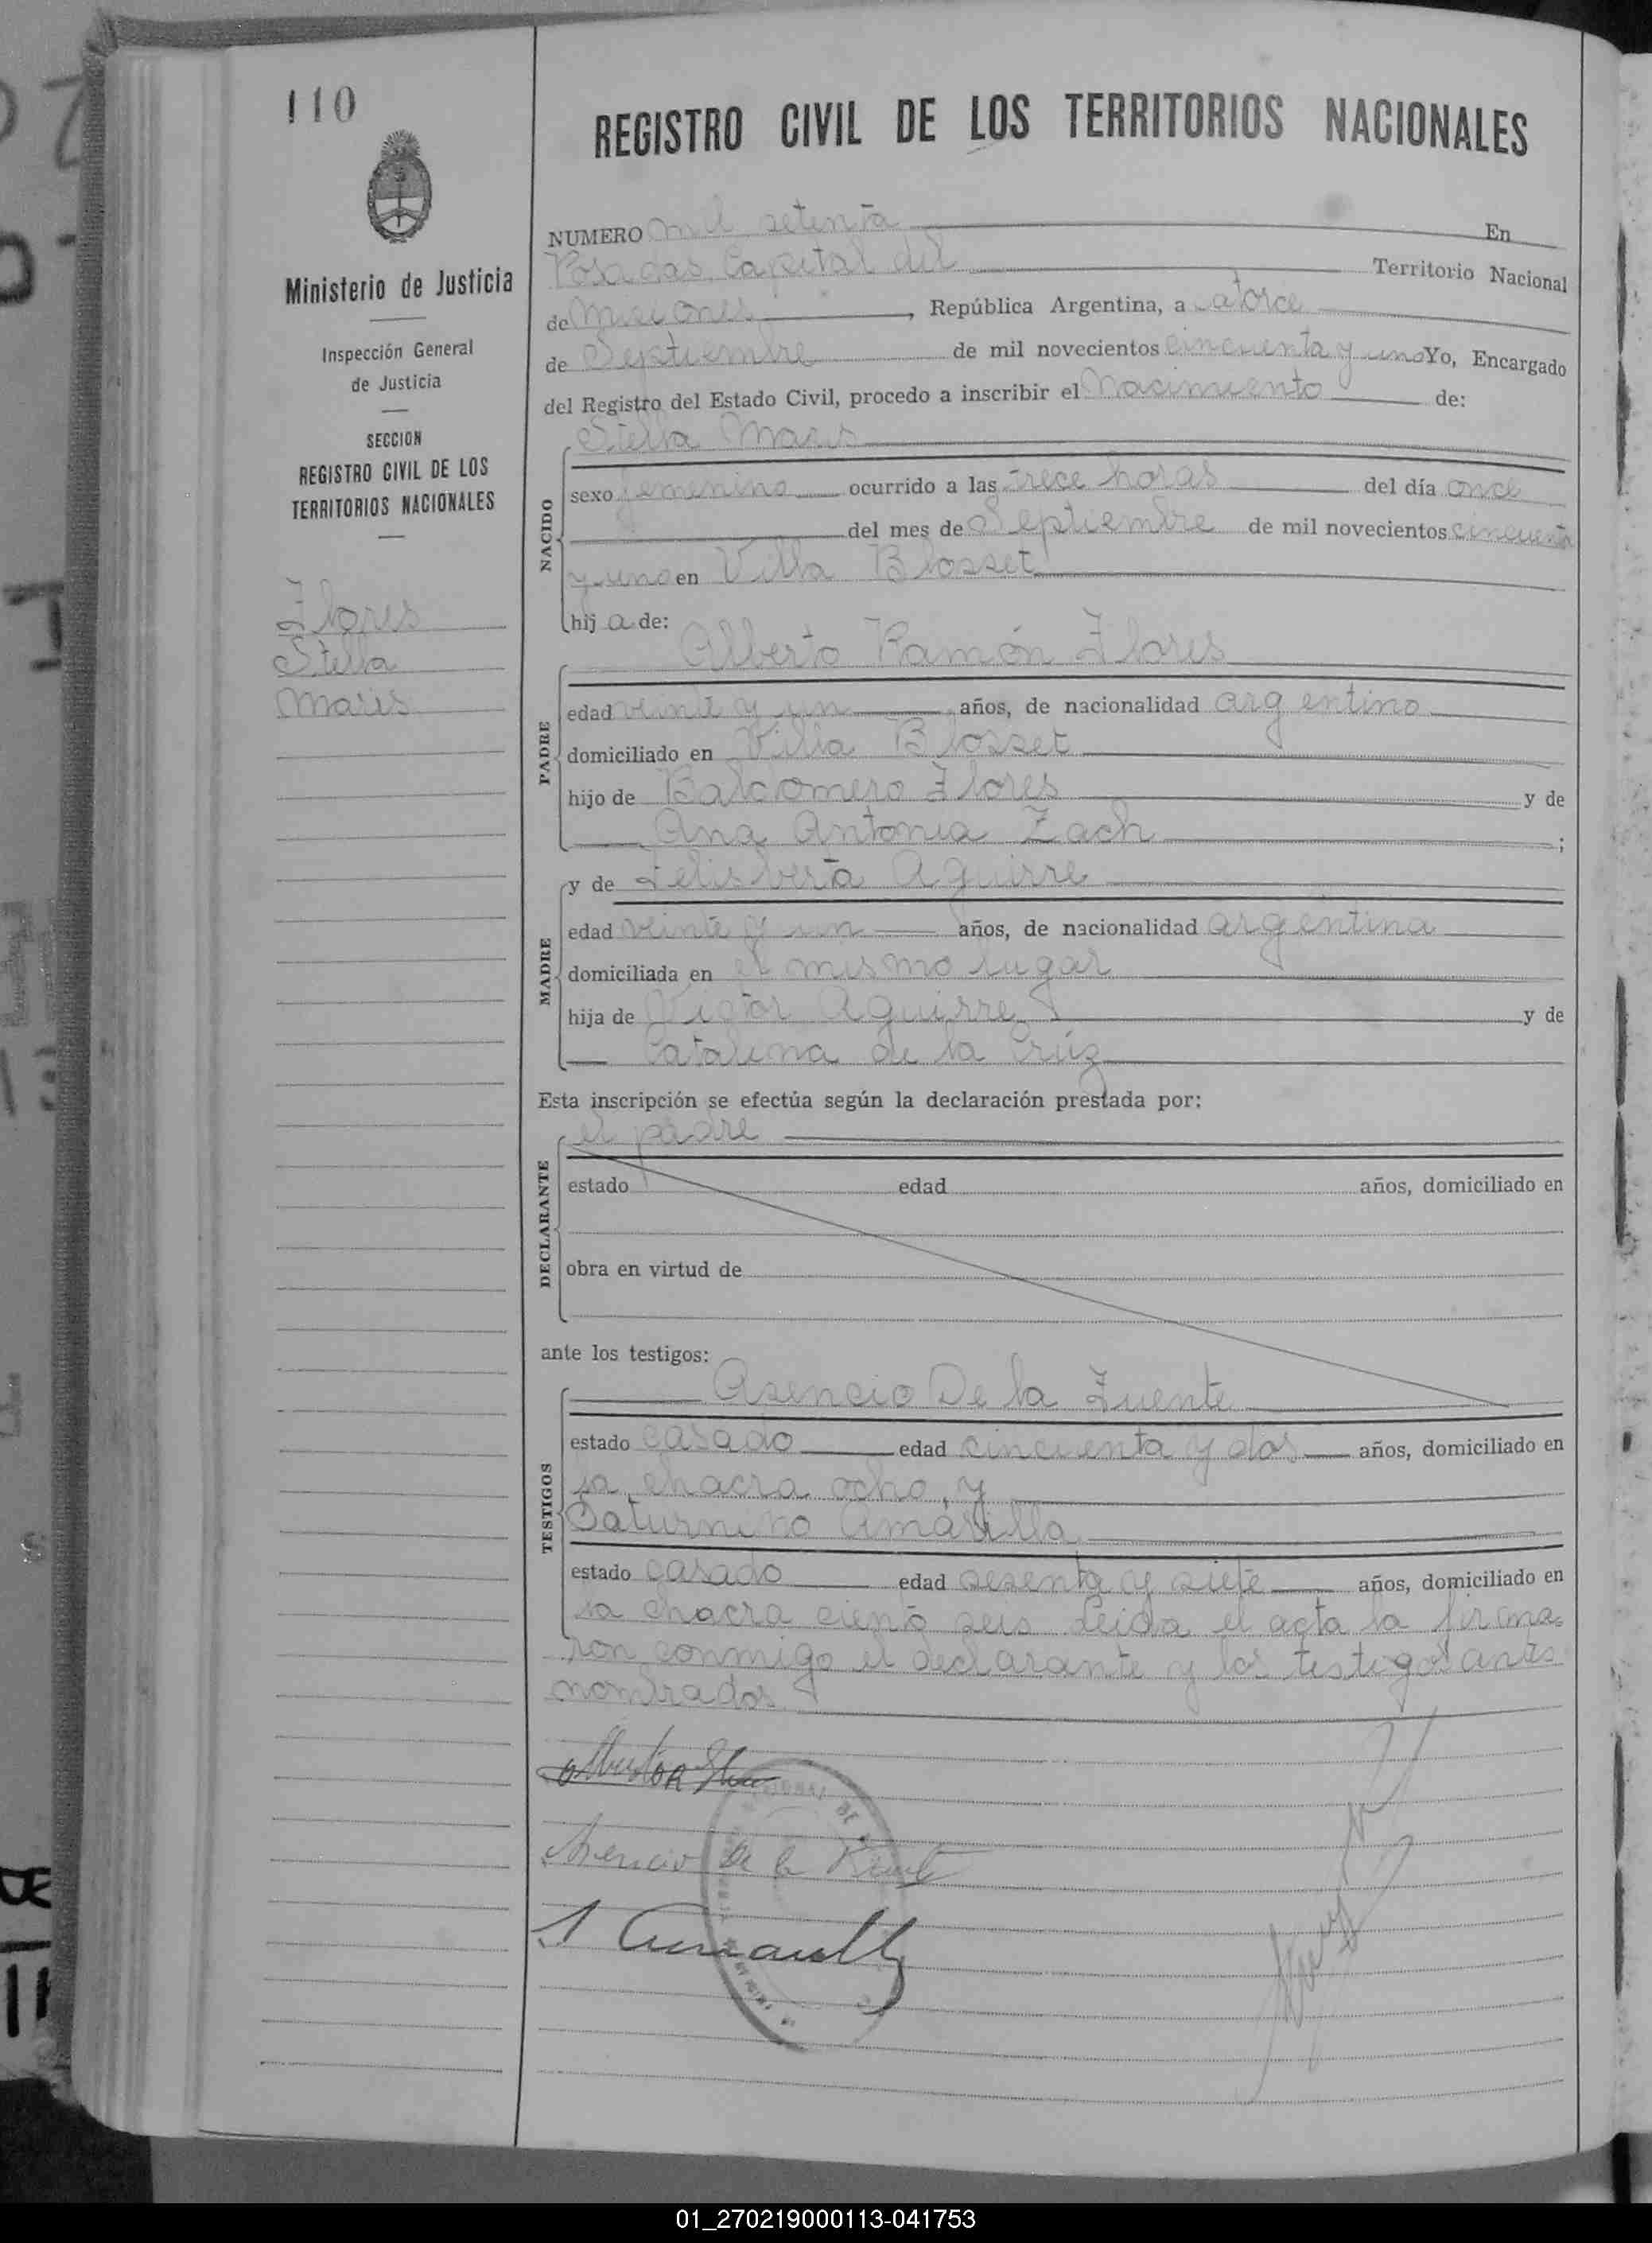 110
Ministerio de Justicia
Inspección General
de Justicia
SECCION
REGISTRO CIVIL DE LOS
TERRITORIOS NACIONALES
Flores
Stella
Maris
REGISTRO CIVIL DE LOS TERRITORIOS NACIONALES
NUMERO mil setenta En
Posadas Capital del Territorio Nacional
de Misiones, República Argentina, a catorce
de Septiembre de mil novecientos cincuenta y uno Yo, Encargado
del Registro del Estado Civil, procedo a inscribir el Nacimiento de:
NACIDO
Stella Maris
sexo femenino ocurrido a las trece horas del día once
del mes de Septiembre de mil novecientos cincuenta
y uno en Villa Blosset
hij a de:
PADRE
Alberto Ramón Flores
edad veinte y un años, de nacionalidad argentino
domiciliado en Villa Blosset
hijo de Baldomero Flores y de
Ana Antonia Zach ;
MADRE
y de Felisberta Aguirre
edad veinte y un años, de nacionalidad argentina
domiciliada en el mismo lugar
hija de Victor Aguirre y de
Catalina de la Crúz
Esta inscripción se efectúa según la declaración prestada por:
DECLARANTE
el padre
estado edad años, domiciliado en
obra en virtud de
ante los testigos:
TESTIGOS
Asencio De la Fuente
estado casado edad cincuenta y dos años, domiciliado en
la chacra ocho, y
Saturnino Amarilla
estado casado edad sesenta y siete años, domiciliado en
la chacra ciento seis Leida el acta la firma-
ron conmigo el declarante y los testigos antes
nombrados
Asencio de la Fuente
S Amarilla
01_270219000113-041753